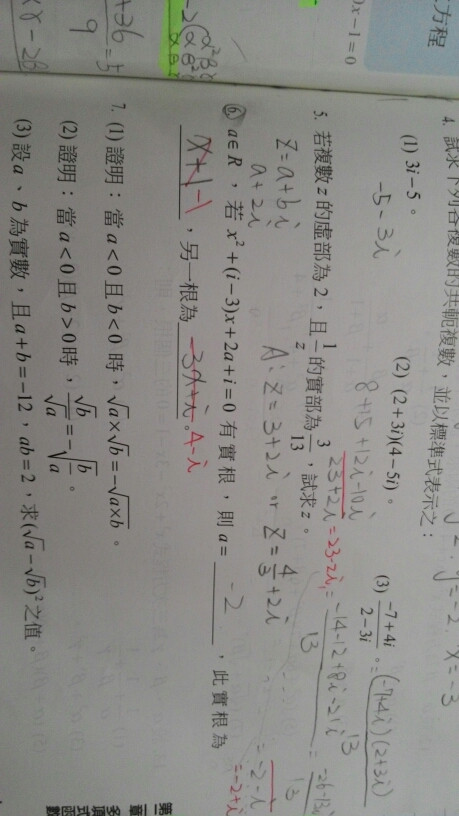 方程
)x-1=0
4. 試求下列各複數的共軛複數，並以標準式表示之：
(1) 3i-5。
-5-3i
(2) (2+3i)(4-5i)。
8+15+12i-10i
23+2i=23-2i
(3) \frac{-7+4i}{2-3i}。=\frac{(-7+4i)(2+3i)}{13}
=\frac{-14-12+8i-21i}{13}=\frac{-26-13i}{13}
=-2-i
=-2+i
5. 若複數 z 的虛部為 2，且 \frac{1}{z} 的實部為 \frac{3}{13}，試求 z。
z=a+bi
a+2i
A: z=3+2i or z=\frac{4}{3}+2i
⑥ a∈R，若 x²+(i-3)x+2a+i=0 有實根，則 a= -2 ，此實根為
-1 ，另一根為 4-i 。
7. (1) 證明：當 a<0 且 b<0 時，√a×√b=-√(a×b)。
(2) 證明：當 a<0 且 b>0 時，\frac{√b}{√a}=-√\frac{b}{a}。
(3) 設 a、b 為實數，且 a+b=-12，ab=2，求 (√a-√b)² 之值。